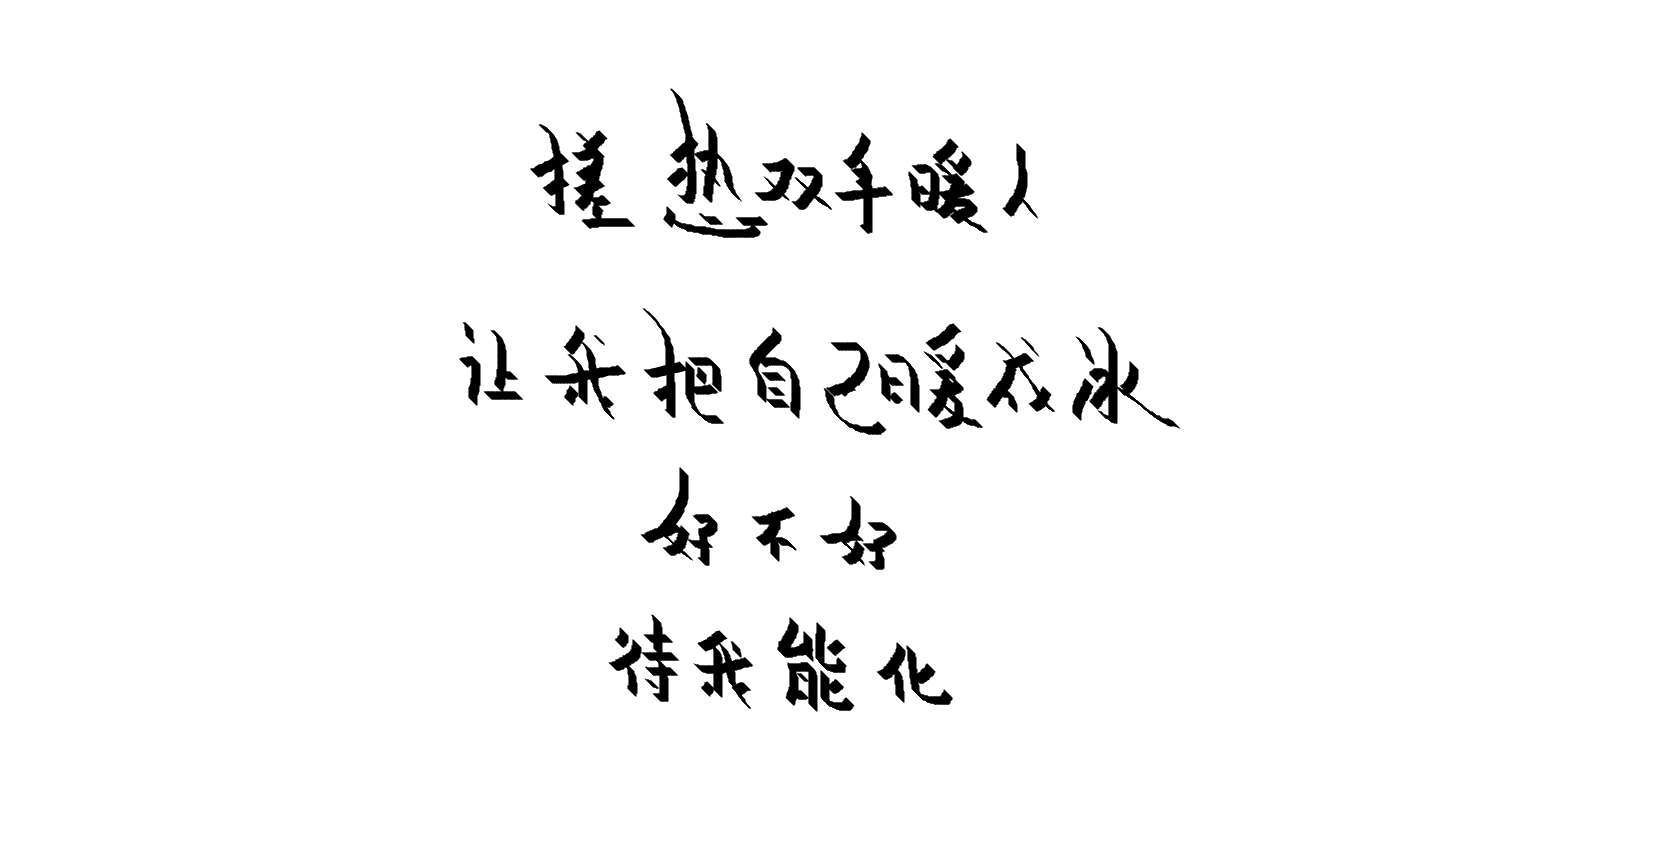 搓热双手暖人
让我把自己暖成冰
好不好
待我能化